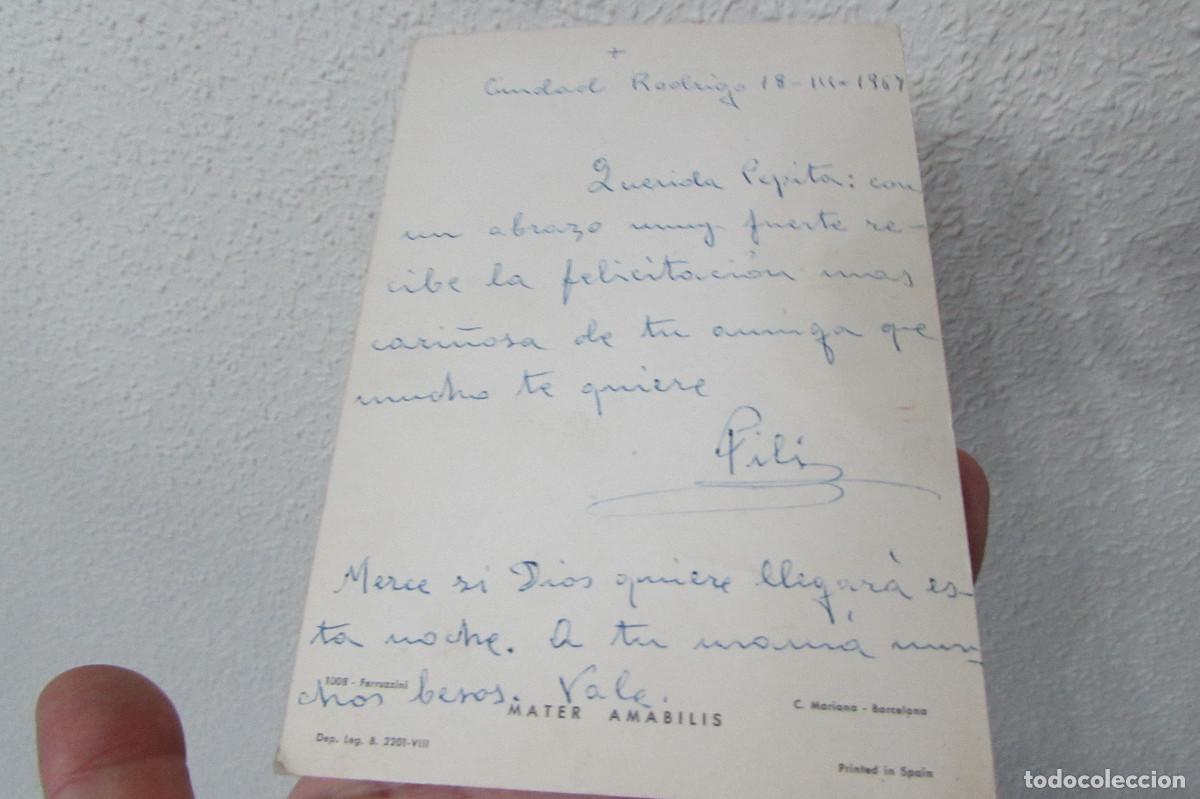 +
Ciudad Rodrigo 18-III-1967
Querida Pepita: con
un abrazo muy fuerte re-
cibe la felicitación mas
cariñosa de tu amiga que
mucho te quiere
Pili
Merce si Dios quiere llegará es-
ta noche. A tu mamá mu-
chos besos. Vale.
1008 - Ferruzzini
MATER AMABILIS
C. Mariana - Barcelona
Dep. Leg. B. 2201-VIII
Printed in Spain
todocoleccion